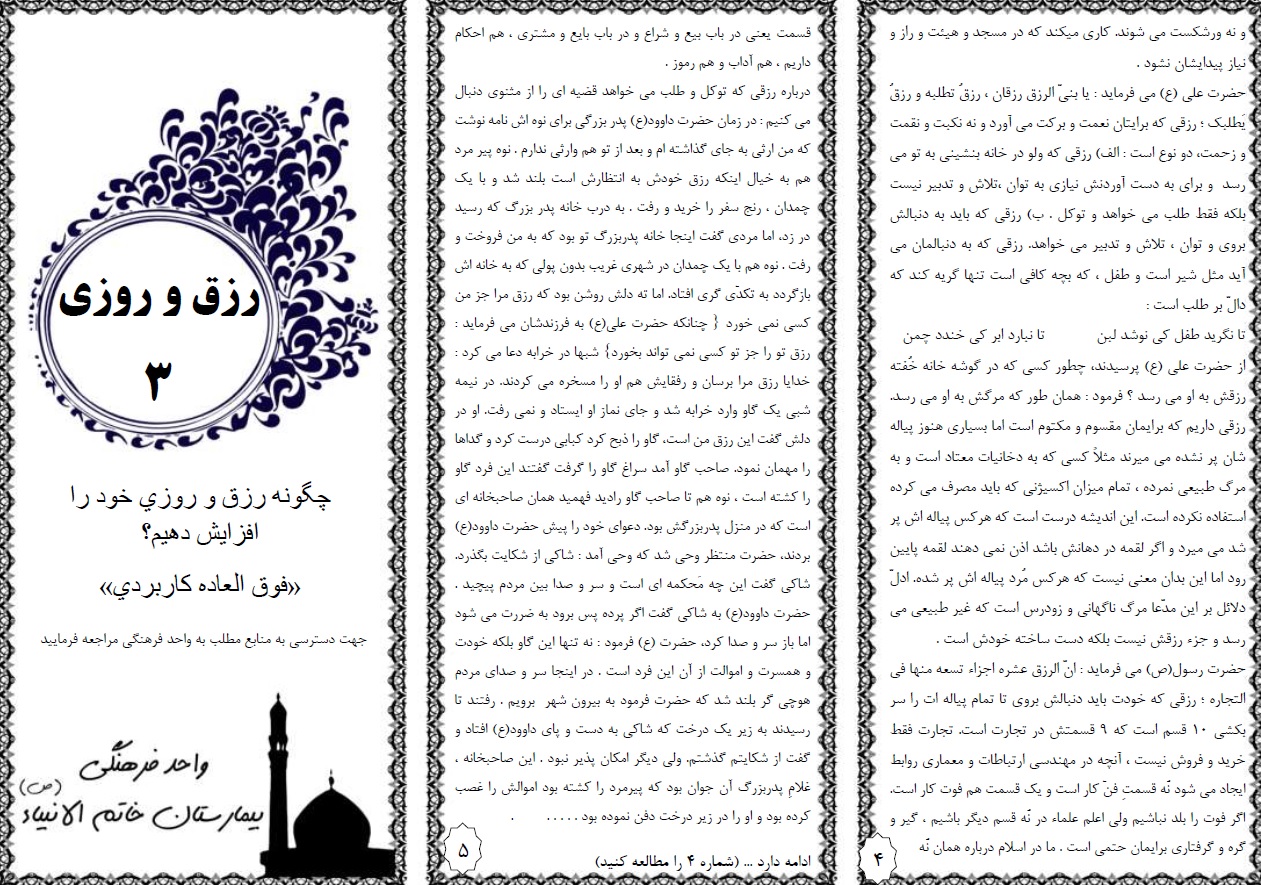 و نه ورشکست می شوند. کاری میکند که در مسجد و هیئت و راز و
نیاز پیدایشان نشود .
حضرت علی (ع) می فرماید : یا بنیّ الرزق رزقان ، رزقٌ تطلبه و رزقٌ
یَطلبک ؛ رزقی که برایتان نعمت و برکت می آورد و نه نکبت و نقمت
و زحمت، دو نوع است : الف) رزقی که ولو در خانه بنشینی به تو می
رسد و برای به دست آوردنش نیازی به توان ،تلاش و تدبیر نیست
بلکه فقط طلب می خواهد و توکل . ب) رزقی که باید به دنبالش
بروی و توان ، تلاش و تدبیر می خواهد. رزقی که به دنبالمان می
آید مثل شیر است و طفل ، که بچه کافی است تنها گریه کند که
دالّ بر طلب است :
تا نگرید طفل کی نوشد لبن تا نبارد ابر کی خندد چمن
از حضرت علی (ع) پرسیدند، چطور کسی که در گوشه خانه خُفته
رزقش به او می رسد ؟ فرمود : همان طور که مرگش به او می رسد.
رزقی داریم که برایمان مقسوم و مکتوم است اما بسیاری هنوز پیاله
شان پر نشده می میرند مثلاً کسی که به دخانیات معتاد است و به
مرگ طبیعی نمرده ، تمام میزان اکسیژنی که باید مصرف می کرده
استفاده نکرده است. این اندیشه درست است که هرکس پیاله اش پر
شد می میرد و اگر لقمه در دهانش باشد اذن نمی دهند لقمه پایین
رود اما این بدان معنی نیست که هرکس مُرد پیاله اش پر شده. ادلّ
دلائل بر این مدّعا مرگ ناگهانی و زودرس است که غیر طبیعی می
رسد و جزء رزقش نیست بلکه دست ساخته خودش است .
حضرت رسول(ص) می فرماید : انّ الرزق عشره اجزاء تسعه منها فی
التجاره ؛ رزقی که خودت باید دنبالش بروی تا تمام پیاله ات را سر
بکشی ۱۰ قسم است که ۹ قسمتش در تجارت است. تجارت فقط
خرید و فروش نیست ، آنچه در مهندسی ارتباطات و معماری روابط
ایجاد می شود نُه قسمتِ فنّ کار است و یک قسمت هم فوت کار است.
اگر فوت را بلد نباشیم ولی اعلم علماء در نُه قسم دیگر باشیم ، گیر و
گره و گرفتاری برایمان حتمی است . ما در اسلام درباره همان نُه
۴
قسمت یعنی در باب بیع و شراع و در باب بایع و مشتری ، هم احکام
داریم ، هم آداب و هم رموز .
درباره رزقی که توکل و طلب می خواهد قضیه ای را از مثنوی دنبال
می کنیم : در زمان حضرت داوود(ع) پدر بزرگی برای نوه اش نامه نوشت
که من ارثی به جای گذاشته ام و بعد از تو هم وارثی ندارم . نوه پیر مرد
هم به خیال اینکه رزق خودش به انتظارش است بلند شد و با یک
چمدان ، رنج سفر را خرید و رفت . به درب خانه پدر بزرگ که رسید
در زد، اما مردی گفت اینجا خانه پدربزرگ تو بود که به من فروخت و
رفت . نوه هم با یک چمدان در شهری غریب بدون پولی که به خانه اش
بازگردد به تکدّی گری افتاد. اما ته دلش روشن بود که رزق مرا جز من
کسی نمی خورد { چنانکه حضرت علی(ع) به فرزندشان می فرماید :
رزق تو را جز تو کسی نمی تواند بخورد} شبها در خرابه دعا می کرد :
خدایا رزق مرا برسان و رفقایش هم او را مسخره می کردند. در نیمه
شبی یک گاو وارد خرابه شد و جای نماز او ایستاد و نمی رفت. او در
دلش گفت این رزق من است، گاو را ذبح کرد کبابی درست کرد و گداها
را مهمان نمود. صاحب گاو آمد سراغ گاو را گرفت گفتند این فرد گاو
را کشته است ، نوه هم تا صاحب گاو رادید فهمید همان صاحبخانه ای
است که در منزل پدربزرگش بود. دعوای خود را پیش حضرت داوود(ع)
بردند، حضرت منتظر وحی شد که وحی آمد : شاکی از شکایت بگذرد.
شاکی گفت این چه مَحکمه ای است و سر و صدا بین مردم پیچید .
حضرت داوود(ع) به شاکی گفت اگر پرده پس برود به ضررت می شود
اما باز سر و صدا کرد، حضرت (ع) فرمود : نه تنها این گاو بلکه خودت
و همسرت و اموالت از آن این فرد است . در اینجا سر و صدای مردم
هوچی گر بلند شد که حضرت فرمود به بیرون شهر برویم . رفتند تا
رسیدند به زیر یک درخت که شاکی به دست و پای داوود(ع) افتاد و
گفت از شکایتم گذشتم. ولی دیگر امکان پذیر نبود . این صاحبخانه ،
غلامِ پدربزرگ آن جوان بود که پیرمرد را کشته بود اموالش را غصب
کرده بود و او را در زیر درخت دفن نموده بود ..... .
ادامه دارد ... (شماره ۴ را مطالعه کنید)
۵
رزق و روزی
۳
چگونه رزق و روزي خود را
افزایش دهیم؟
«فوق العاده کاربردي»
جهت دسترسی به منابع مطلب به واحد فرهنگی مراجعه فرمایید
واحد فرهنگی
بیمارستان خاتم الانبیاء (ص)